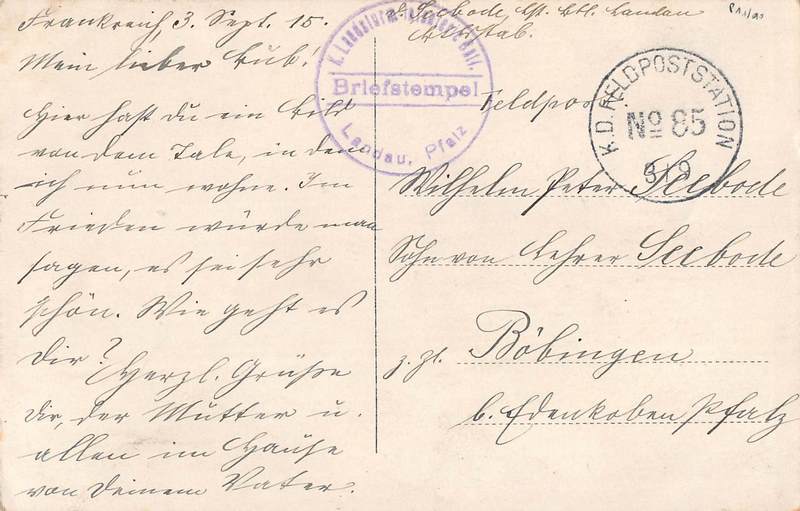 Frankreich, 3. Sept. 15.
Mein lieber Bub!
Hier hast du ein Bild
von dem Tale, in dem
ich nun wohne. Im
Frieden würde man
sagen, es sei sehr
schön. Wie geht es
dir?
Herzl. Grüße
dir, der Mutter u.
allen im Hause
von Deinem Vater.
Seebode, Lst. Btl. Landau
K. Landsturm
Briefstempel
Landau, Pfalz
Feldpost
K. D. FELDPOSTSTATION
No 85
3/9
Wilhelm Peter Seebode
Sohn von Lehrer Seebode
z. Zt. Böbingen
b. Edenkoben Pfalz